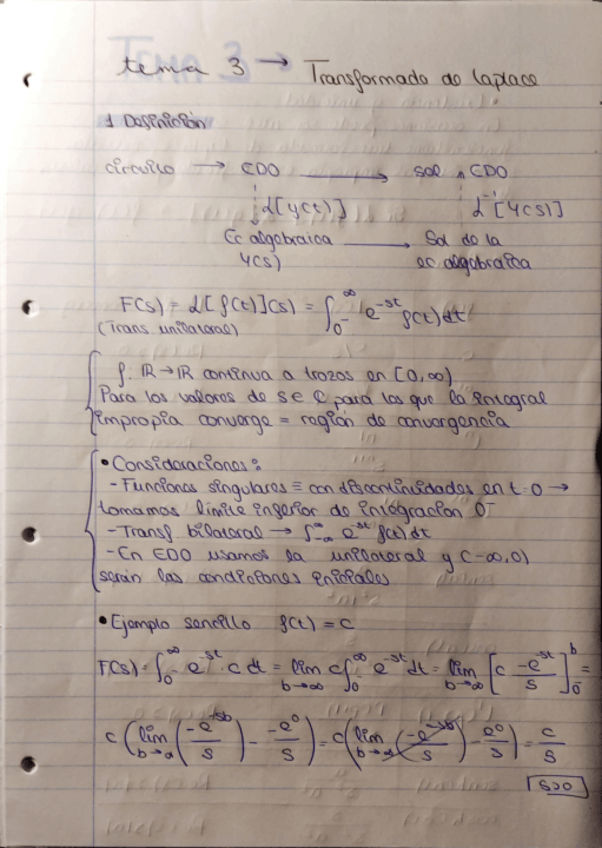 tema 3 → Transformada de Laplace
1 Definición
circuito → EDO → Sol EDO
L[y(t)] L⁻¹[Y(s)]
Ec algebraica → Sol de la
Y(s) ec algebraica
F(s) = L[f(t)](s) = ∫₀₋^∞ e^-st f(t) dt
(Trans unilateral)
f: ℝ → ℝ continua a trozos en [0, ∞)
Para los valores de s ∈ ℂ para los que la integral
impropia converge = región de convergencia
• Consideraciones:
- Funciones singulares ≡ con discontinuidades en t=0 →
tomamos límite inferior de integración 0⁻
- Transf bilateral → ∫₋∞^∞ e^-st f(t) dt
- En EDO usamos la unilateral y (-∞, 0)
serán las condiciones iniciales
• Ejemplo sencillo f(t) = c
F(s) = ∫₀₋^∞ e^-st · c dt = lim b→∞ c ∫₀₋^∞ e^-st dt = lim b→∞ [c -e^-st/s]₀₋^b =
c (lim b→∞ (-e^-sb/s) - -e^0/s) = c (lim b→∞ (-e^-sb/s) - -e^0/s) = c/s
s>0